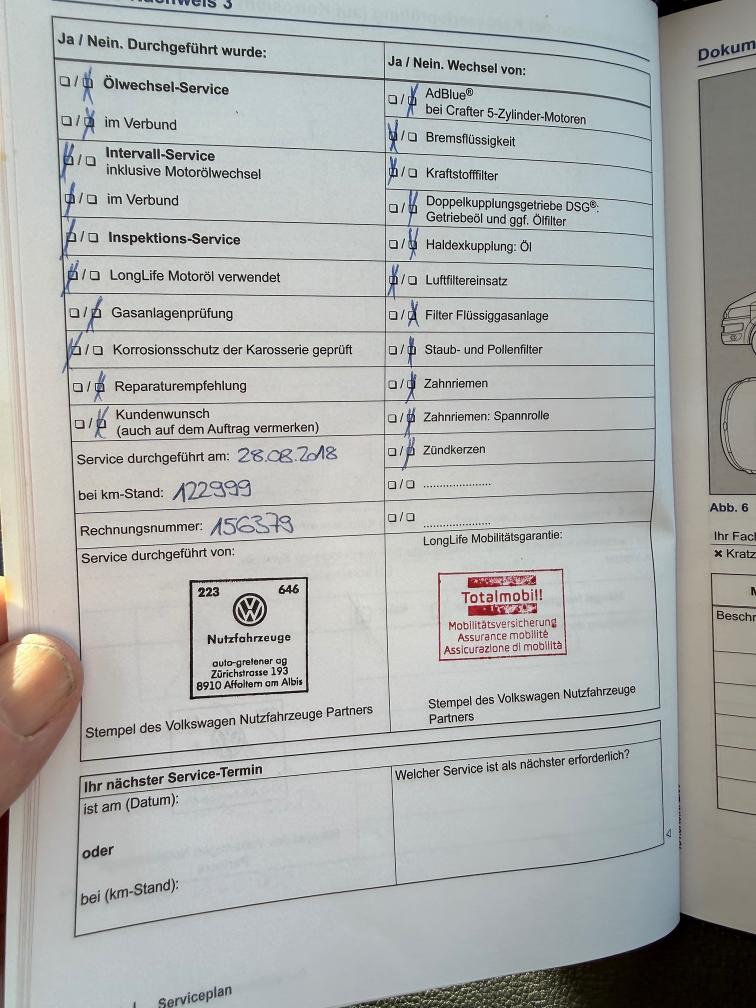 Nachweis 3
Ja / Nein. Durchgeführt wurde:
❑ / ❑ Ölwechsel-Service
❑ / ❑ im Verbund
❑ / ❑ Intervall-Service
inklusive Motorölwechsel
❑ / ❑ im Verbund
❑ / ❑ Inspektions-Service
❑ / ❑ LongLife Motoröl verwendet
❑ / ❑ Gasanlagenprüfung
❑ / ❑ Korrosionsschutz der Karosserie geprüft
❑ / ❑ Reparaturempfehlung
❑ / ❑ Kundenwunsch
(auch auf dem Auftrag vermerken)
Service durchgeführt am: 28.08.2018
bei km-Stand: 122999
Rechnungsnummer: 156379
Ja / Nein. Wechsel von:
❑ / ❑ AdBlue®
bei Crafter 5-Zylinder-Motoren
❑ / ❑ Bremsflüssigkeit
❑ / ❑ Kraftstofffilter
❑ / ❑ Doppelkupplungsgetriebe DSG®:
Getriebeöl und ggf. Ölfilter
❑ / ❑ Haldexkupplung: Öl
❑ / ❑ Luftfiltereinsatz
❑ / ❑ Filter Flüssiggasanlage
❑ / ❑ Staub- und Pollenfilter
❑ / ❑ Zahnriemen
❑ / ❑ Zahnriemen: Spannrolle
❑ / ❑ Zündkerzen
❑ / ❑ .....................
❑ / ❑ .....................
Service durchgeführt von:
223 646
Nutzfahrzeuge
auto-gretener ag
Zürichstrasse 193
8910 Affoltern am Albis
Stempel des Volkswagen Nutzfahrzeuge Partners
LongLife Mobilitätsgarantie:
Totalmobil!
Mobilitätsversicherung
Assurance mobilité
Assicurazione di mobilità
Stempel des Volkswagen Nutzfahrzeuge
Partners
Ihr nächster Service-Termin
ist am (Datum):
oder
bei (km-Stand):
Welcher Service ist als nächster erforderlich?
Serviceplan
Dokum
Abb. 6
Ihr Fach
✖ Kratz
M
Beschr